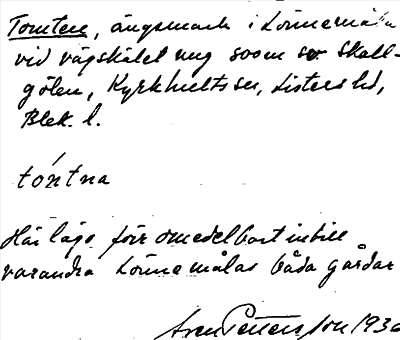 Tomten, ängsmark i Lönnemåla
vid vägskälet ung 500m sv Skall-
gölen, Kyrkhults sn, Listers hd,
Blek. l.
tómtna
Här lågo förr omedelbart intill
varandra Lönnemålas båda gårdar
Sven Pettersson 1936